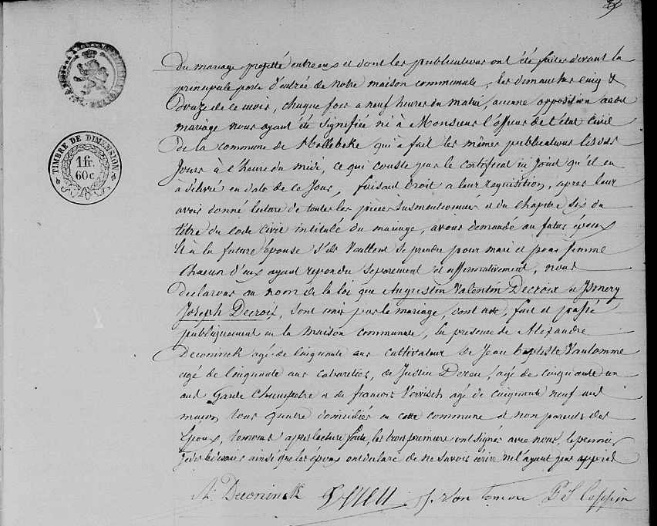 TIMBRE DE DIMENSION
1 fr.
60 c.
Du mariage projetté entre eux et dont les publications ont été faites devant la
principale porte d'entrée de notre maison communale, les dimanches cinq &
douze de ce mois, chaque fois a neuf heures du matin, aucune opposition
mariage nous ayant été signifiée ni à Monsieur l'officier de l'état civil
de la commune de Hollebeke qui a fait les mêmes publications les dits
Jours a l'heure du midi, ce qui conste par le certificat ci Joint qu'il en
a délivré en date de ce Jour, faisant droit a leur requisition, après leur
avoir donné lecture de toutes les pièces susmentionnées et du chapitre six du
titre du code civil intitulé du mariage, avons demandé au futur époux
& a la future épouse s'ils veullent se prendre pour mari et pour femme
chacun d'eux ayant repondu separement et affirmativement, nous
declarons au nom de la loi que Augustin Valentin Decroix &
Joseph Decroix, sont unis par le mariage, dont acte, fait et passé
publiquement en la maison communale, en presence de Alexandre
Deconinck agé de cinquante ans cultivateur de Jean baptiste Vantomme
agé de cinquante ans cabaretier, de Justin agé de cinquante un
ans Garde Champetre & de francois agé de cinquante neuf ans
maçon, tous quatre domiciliés en cette commune et non parents des
Epoux, temoins, après lecture faite, les trois premiers ont signés avec nous, le dernier
ainsi que les epoux ont declaré de ne savoir écrire ne l'ayant pas appris
A. Deconinck J. Van tomme